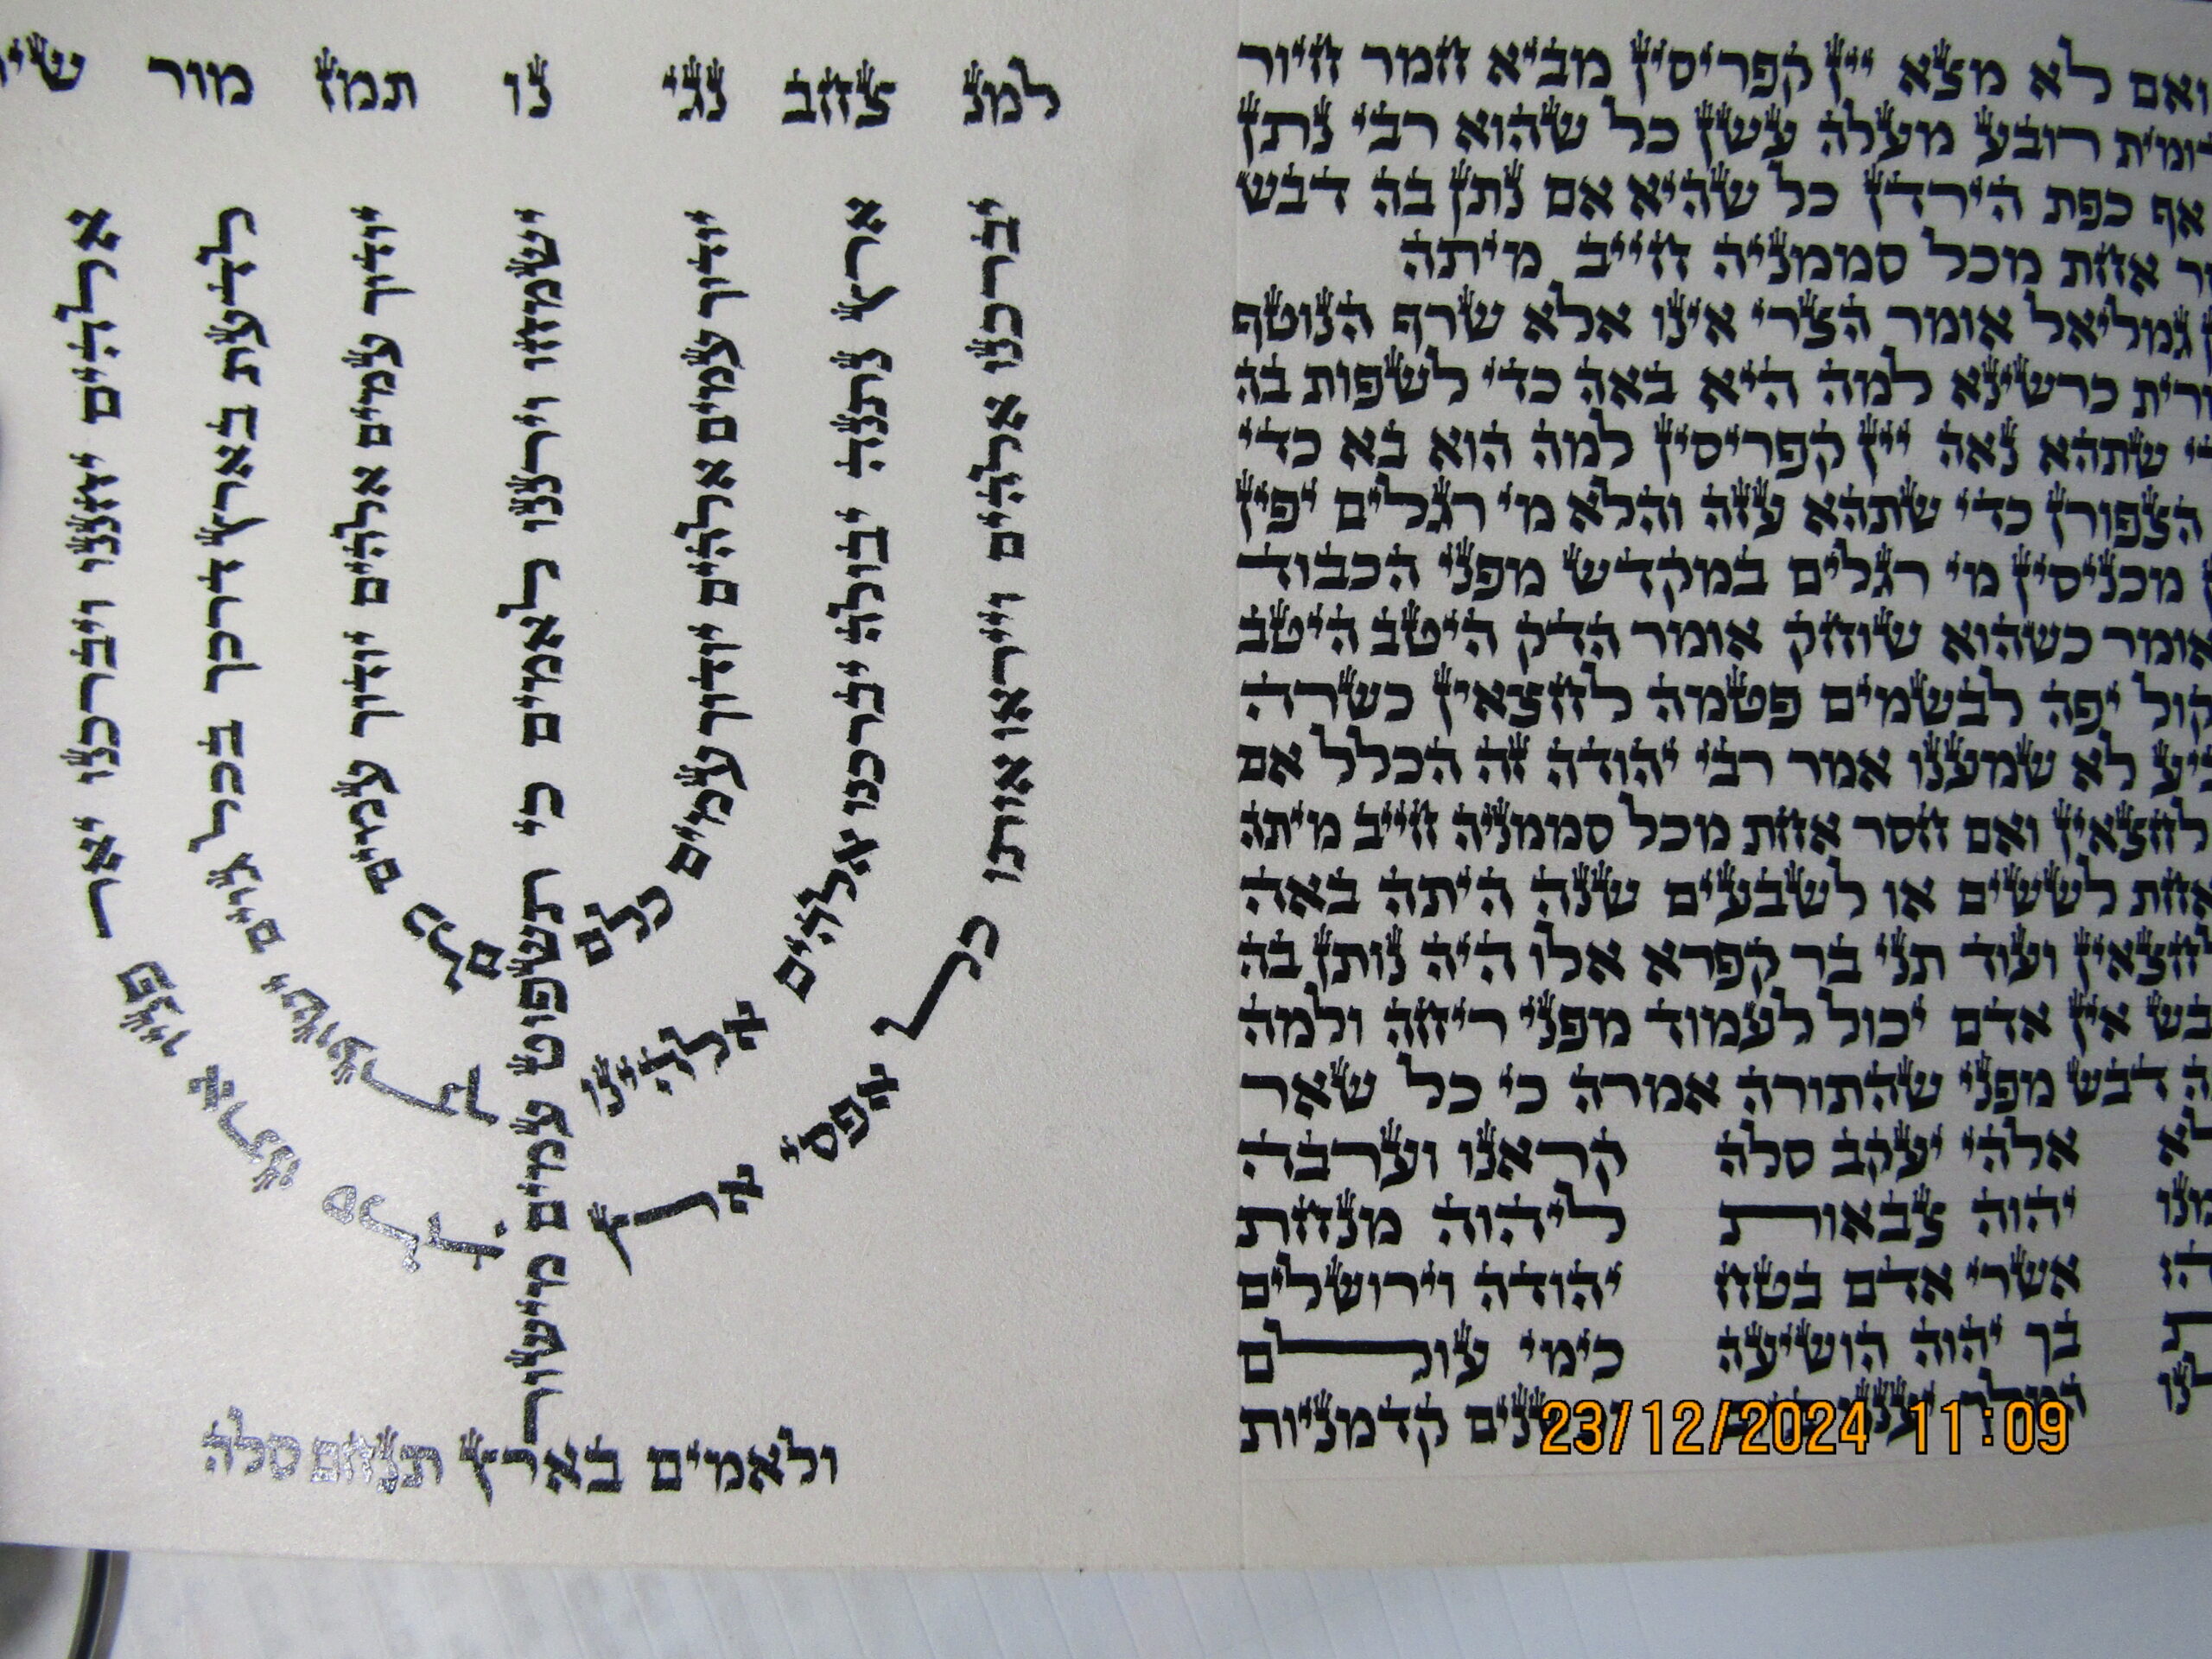 ואם לא מצא יין קפריסין מביא חמר חיור
רובע מעלה עשן כל שהוא רבי נתן
אף כפת הירדן כל שהיא אם נתן בה דבש
אחת מכל סממניה חייב מיתה
גמליאל אומר הצרי אינו אלא שרף הנוטף
כרשינא למה היא באה כדי לשפות בה
שתהא נאה יין קפריסין למה הוא בא כדי
הצפורן כדי שתהא עזה והלא מי רגלים יפין
מכניסין מי רגלים במקדש מפני הכבוד
אומר כשהוא שוחק אומר הדק היטב היטב
יפה לבשמים פטמה לחצאין כשרה
לא שמענו אמר רבי יהודה זה הכלל אם
לחצאין ואם חסר אחת מכל סממניה חייב מיתה
אחת לששים או לשבעים שנה היתה באה
לחצאין ועוד תני בר קפרא אלו היה נותן בה
דבש אין אדם יכול לעמוד מפני ריחה ולמה
דבש מפני שהתורה אמרה כי כל שאר
אלהי יעקב סלה קראנו וערבה
יהוה צבאות ליהוה מנחת
אשרי אדם בטח יהודה וירושלים
בך יהוה הושיעה כימי עולם
קדמניות
למנ צחב נגי נו תמז מור שיר
אלהים יחננו ויברכנו יאר פניו אתנו סלה
לדעת בארץ דרכך בכל גוים ישועתך
יודוך עמים אלהים יודוך עמים כלם
ישמחו וירננו לאמים כי תשפוט עמים מישור
ולאמים בארץ תנחם סלה
יודוך עמים אלהים יודוך עמים כלם
ארץ נתנה יבולה יברכנו אלהים אלהינו
יברכנו אלהים וייראו אותו כל אפסי ארץ
23/12/2024 11:09